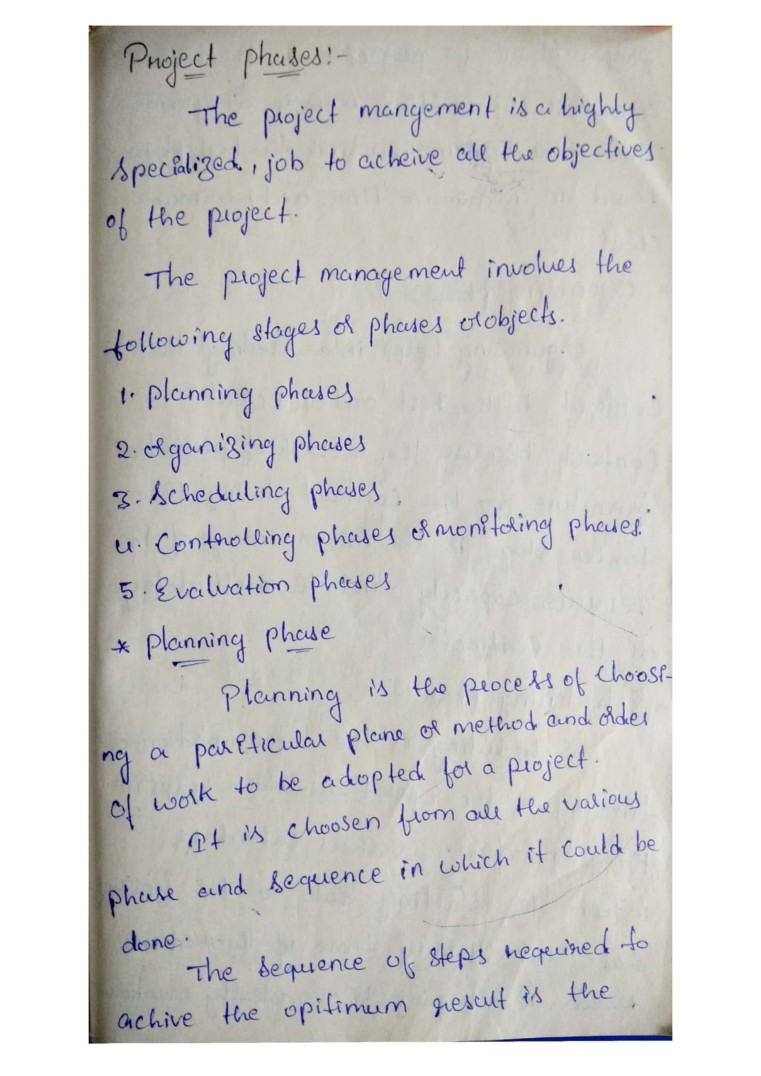 Project phases:-
The project mangement is a highly
specialized, job to acheive all the objectives
of the project.
The project management involves the
following stages or phases or objects.
1. planning phases
2. organizing phases
3. Scheduling phases
4. Controlling phases or monitoring phases.
5. Evalvation phases
* planning phase
Planning is the process of choosi-
ng a particular plane or method and order
of work to be adopted for a project.
It is choosen from all the various
phase and sequence in which it could be
done.
The sequence of steps required to
achive the opitimum result is the